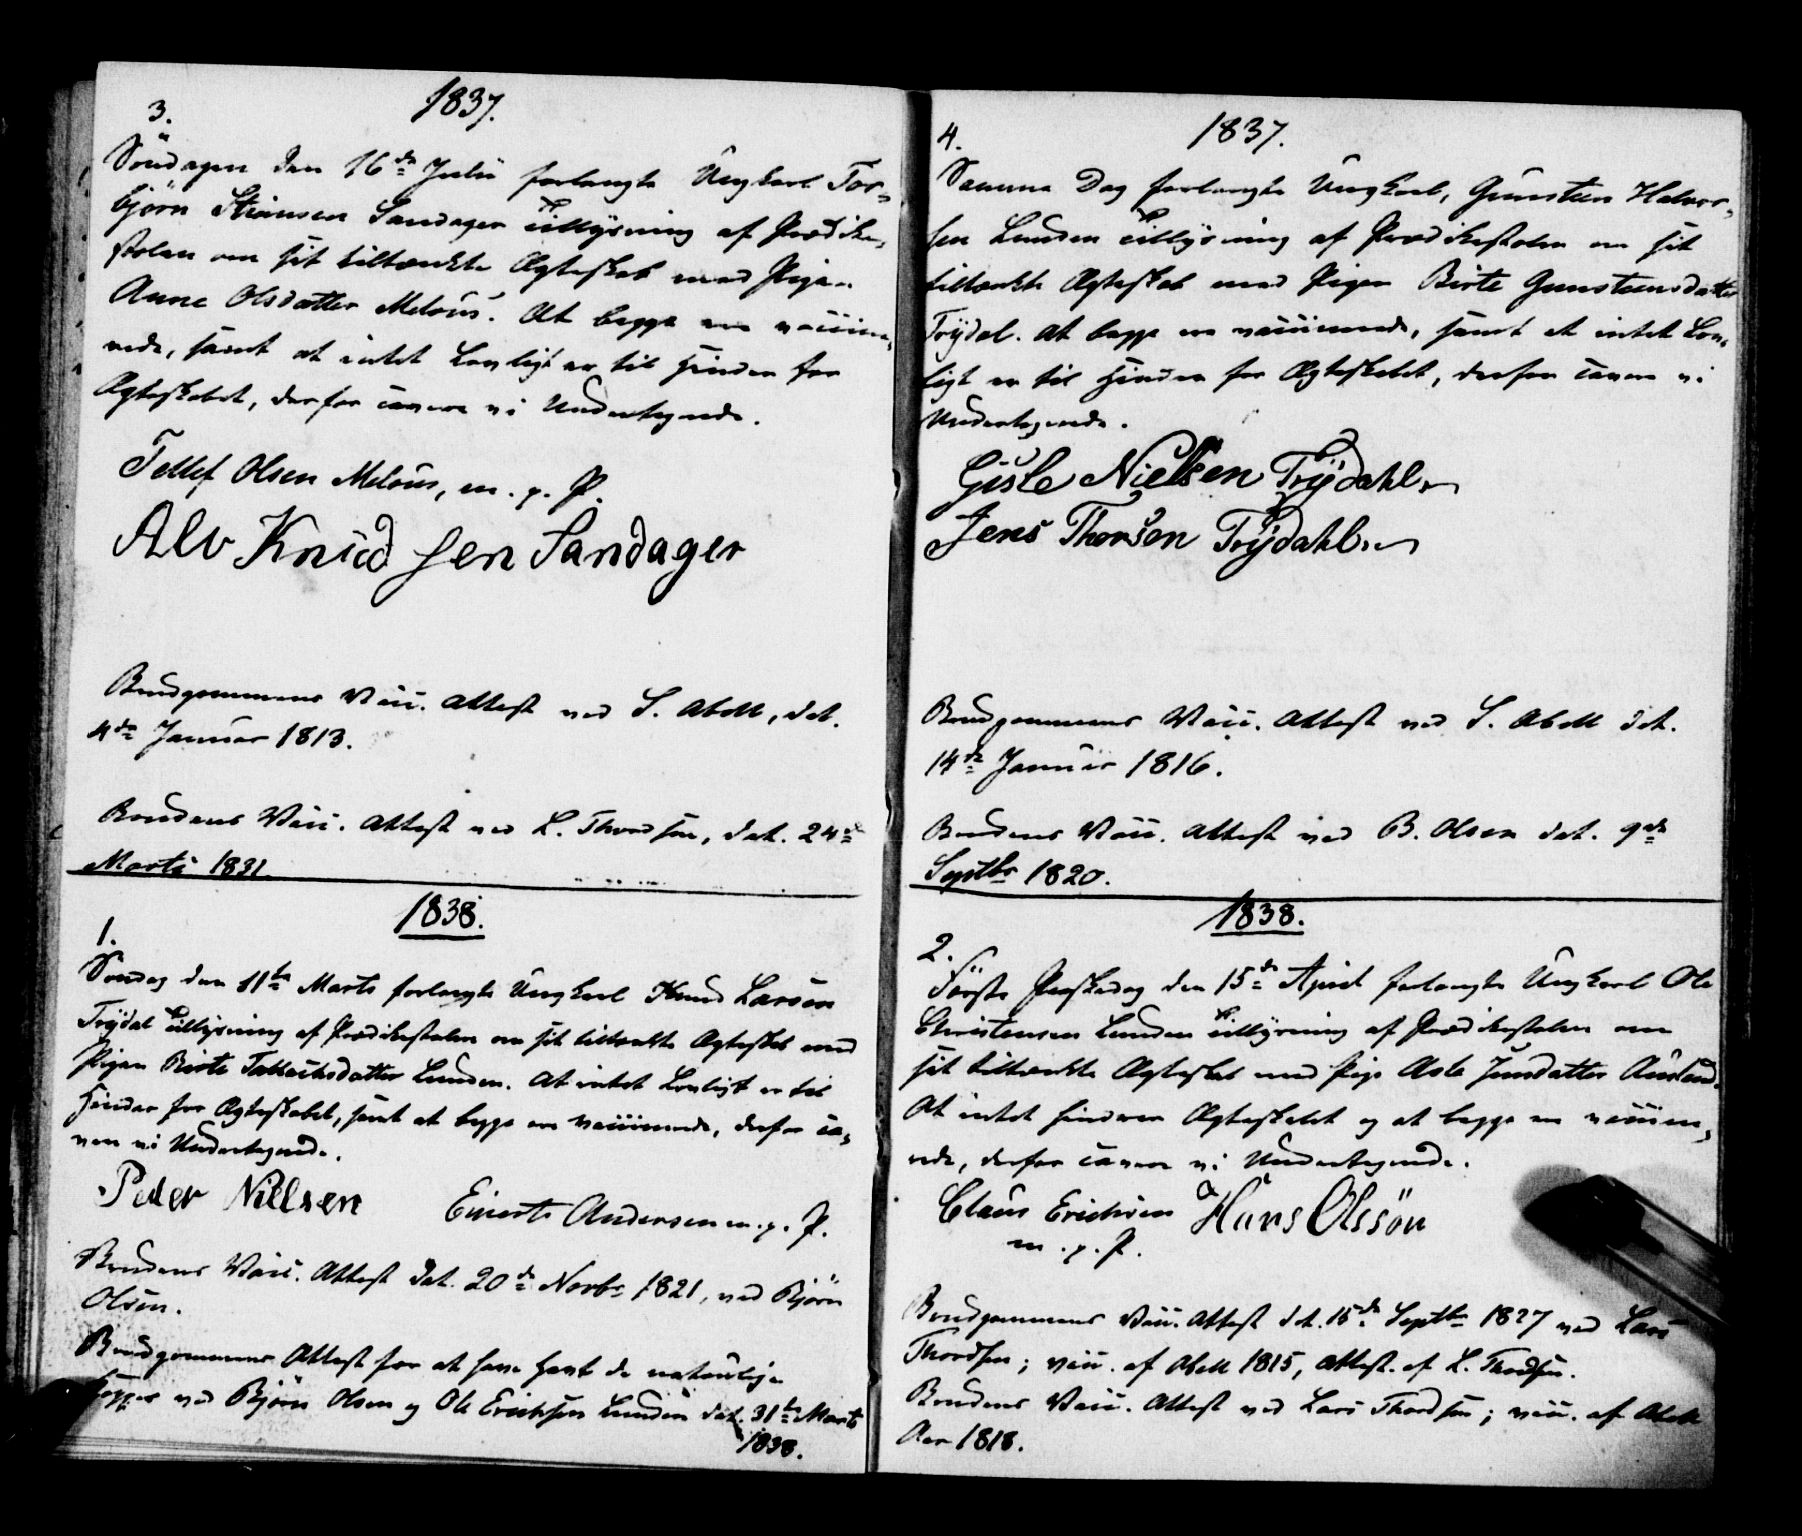 1837.
3.
Søndagen den 16de Julii forlangte Ungkarl Tor-
bjørn Stiansen Sandager Tillysning af Prædike-
stolen om sit tiltænkte Ægteskab med Pigen
Anne Olsdatter Meløus. At begge ere vaccine-
rede, samt at intet Lovligt er til Hinder for
Ægteskabet, derfor cavere vi Undertegnede.
Tellef Olsen Meløus, m. p. P.
Alv Knud sen Sandager
Brudgommens Vacc. Attest ved S. Abell, dat.
4de Januar 1813.
Brudens Vacc. Attest ved L. Thordsen, dat. 24de
Marts 1831.
1838.
1.
Søndag den 11te Marts forlangte Ungkarl Knud Larsen
Trydal Tillysning af Prædikestolen om sit tiltænkte Ægteskab med
Pigen Birte Tallachsdatter Lunden. At intet Lovligt er til
Hinder for Ægteskabet, samt at begge ere vaccinerede, derfor ca-
vere vi Undertegnede.
Peder Nielsen Evert Andersen m. p. P.
Brudens Vacc. Attest dat. 20de Novbr 1821, ved Bjørn
Olsen.
Brudgommens Attest for at have havt de naturlige
Kopper ved Bjørn Olsen og Ole Erichsen Lunden dat. 31te Marts
1838.
1837.
4.
Samme Dag forlangte Ungkarl, Gunsten Halvor-
sen Lunden Tillysning af Prædikestolen om sit
tiltænkte Ægteskab med Pigen Birte Gunstensdatter
Trydal. At begge ere vaccinerede, samt at intet Lov-
ligt er til Hinder for Ægteskabet, derfor cavere vi
Undertegnede.
Gisle Nielsen Trÿdahl
Jens Thorsen Trÿdahl
Brudgommens Vacc. Attest ved S. Abell dat.
14de Januar 1816.
Brudens Vacc. Attest ved B. Olsen dat. 9de
Septbr 1820.
1838.
2.
Første Paaskedag den 15de April forlangte Ungkarl Ole
Christensen Lunden Tillysning af Prædikestolen om
sit tiltænkte Ægteskab med Pige Asle Jensdatter
At intet hindrer Ægteskabet og at begge ere vaccine-
rede, derfor cavere vi Undertegnede.
Claus Erichsen Hans Olssøn
m. p. P.
Brudgommens Vacc. Attest dat. 15de Septbr 1827 ved Lars
Thordsen; vacc. af Abell 1815, attest. af L. Thordsen.
Brudens Vacc. Attest ved Lars Thordsen; vacc. af Abell
Aar 1818.